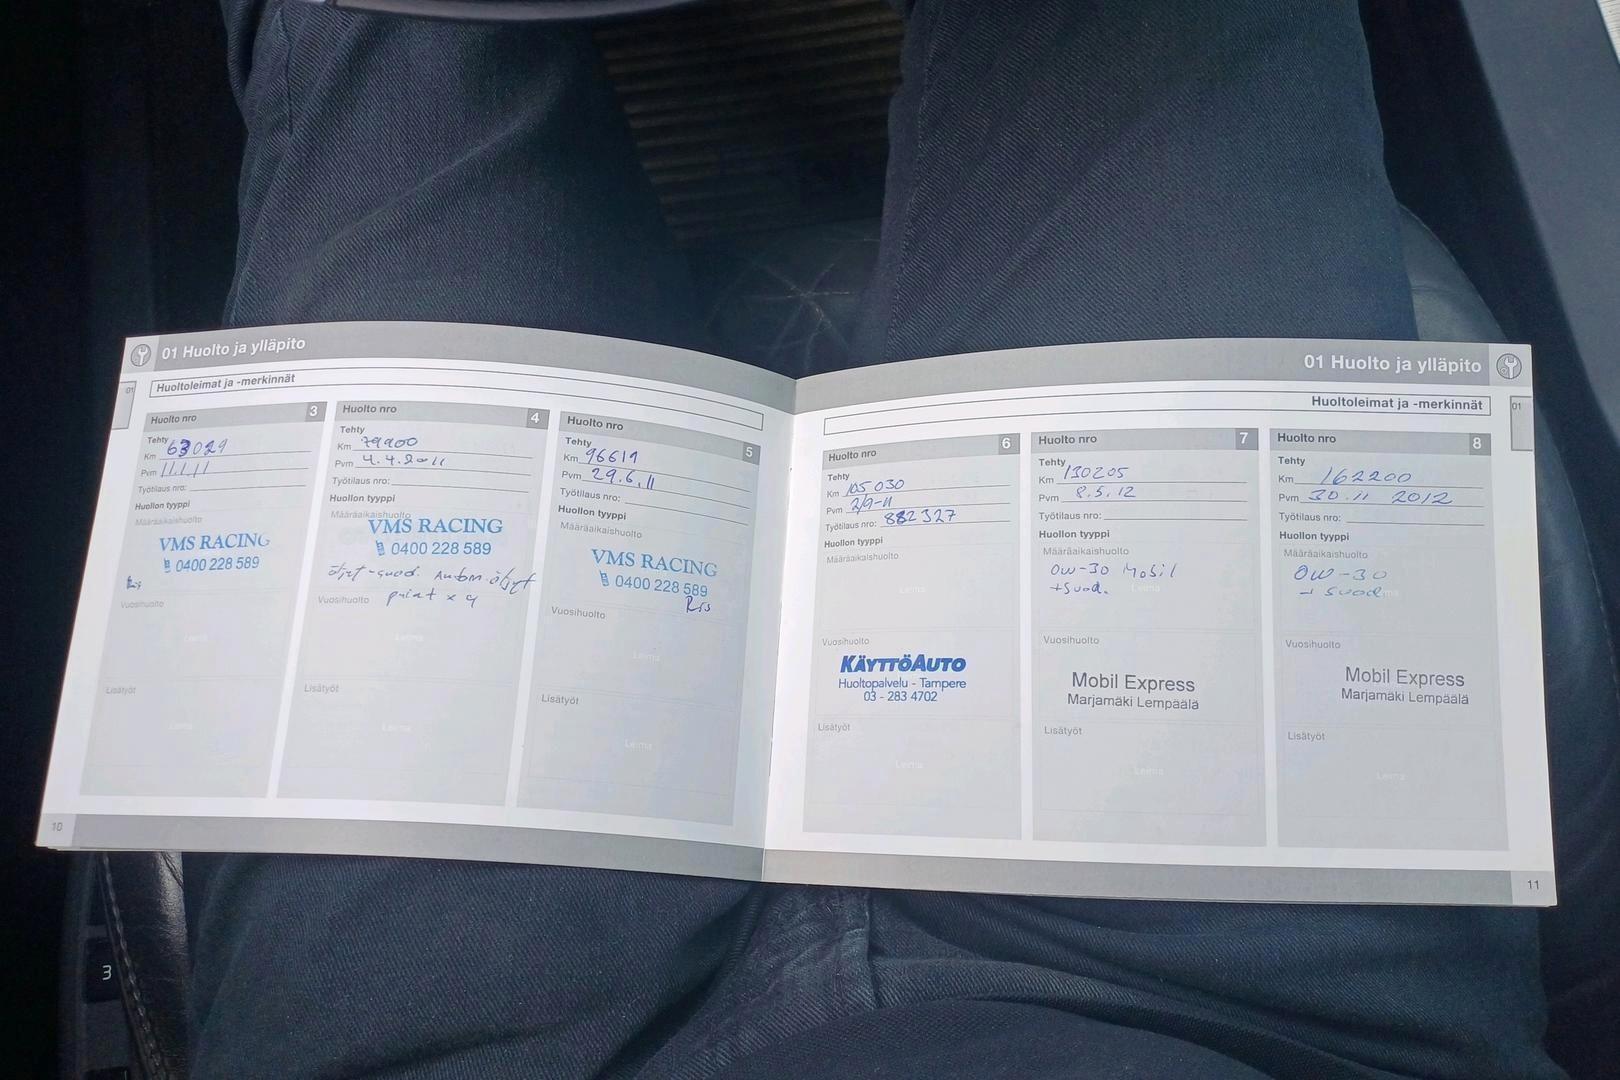 01 Huolto ja ylläpito
01
Huoltoleimat ja -merkinnät
Huolto nro 3
Tehty
Km 63029
Pvm 11.1.11
Työtilaus nro:
Huollon tyyppi
Määräaikaishuolto
VMS RACING
0400 228 589
Vuosihuolto
Leima
Lisätyöt
Leima
Huolto nro 4
Tehty
Km 79900
Pvm 4.4.2011
Työtilaus nro:
Huollon tyyppi
Määräaikaishuolto
VMS RACING
0400 228 589
öljyt-suod. Autom.öljyt
Vuosihuolto
x 4
Leima
Lisätyöt
Leima
Huolto nro 5
Tehty
Km 96619
Pvm 29.6.11
Työtilaus nro:
Huollon tyyppi
Määräaikaishuolto
VMS RACING
0400 228 589
Vuosihuolto
Leima
Lisätyöt
Leima
10
01 Huolto ja ylläpito
01
Huoltoleimat ja -merkinnät
Huolto nro 6
Tehty
Km 105 030
Pvm 2/9-11
Työtilaus nro: 882327
Huollon tyyppi
Määräaikaishuolto
Leima
Vuosihuolto
KÄYTTÖAUTO
Huoltopalvelu - Tampere
03 - 283 4702
Lisätyöt
Leima
Huolto nro 7
Tehty
Km 130205
Pvm 8.5.12
Työtilaus nro:
Huollon tyyppi
Määräaikaishuolto
0w-30 Mobil
+suod.
Leima
Vuosihuolto
Mobil Express
Marjamäki Lempäälä
Lisätyöt
Leima
Huolto nro 8
Tehty
Km 162200
Pvm 30.11 2012
Työtilaus nro:
Huollon tyyppi
Määräaikaishuolto
0w-30
+ suod
Vuosihuolto
Mobil Express
Marjamäki Lempäälä
Lisätyöt
Leima
11
3